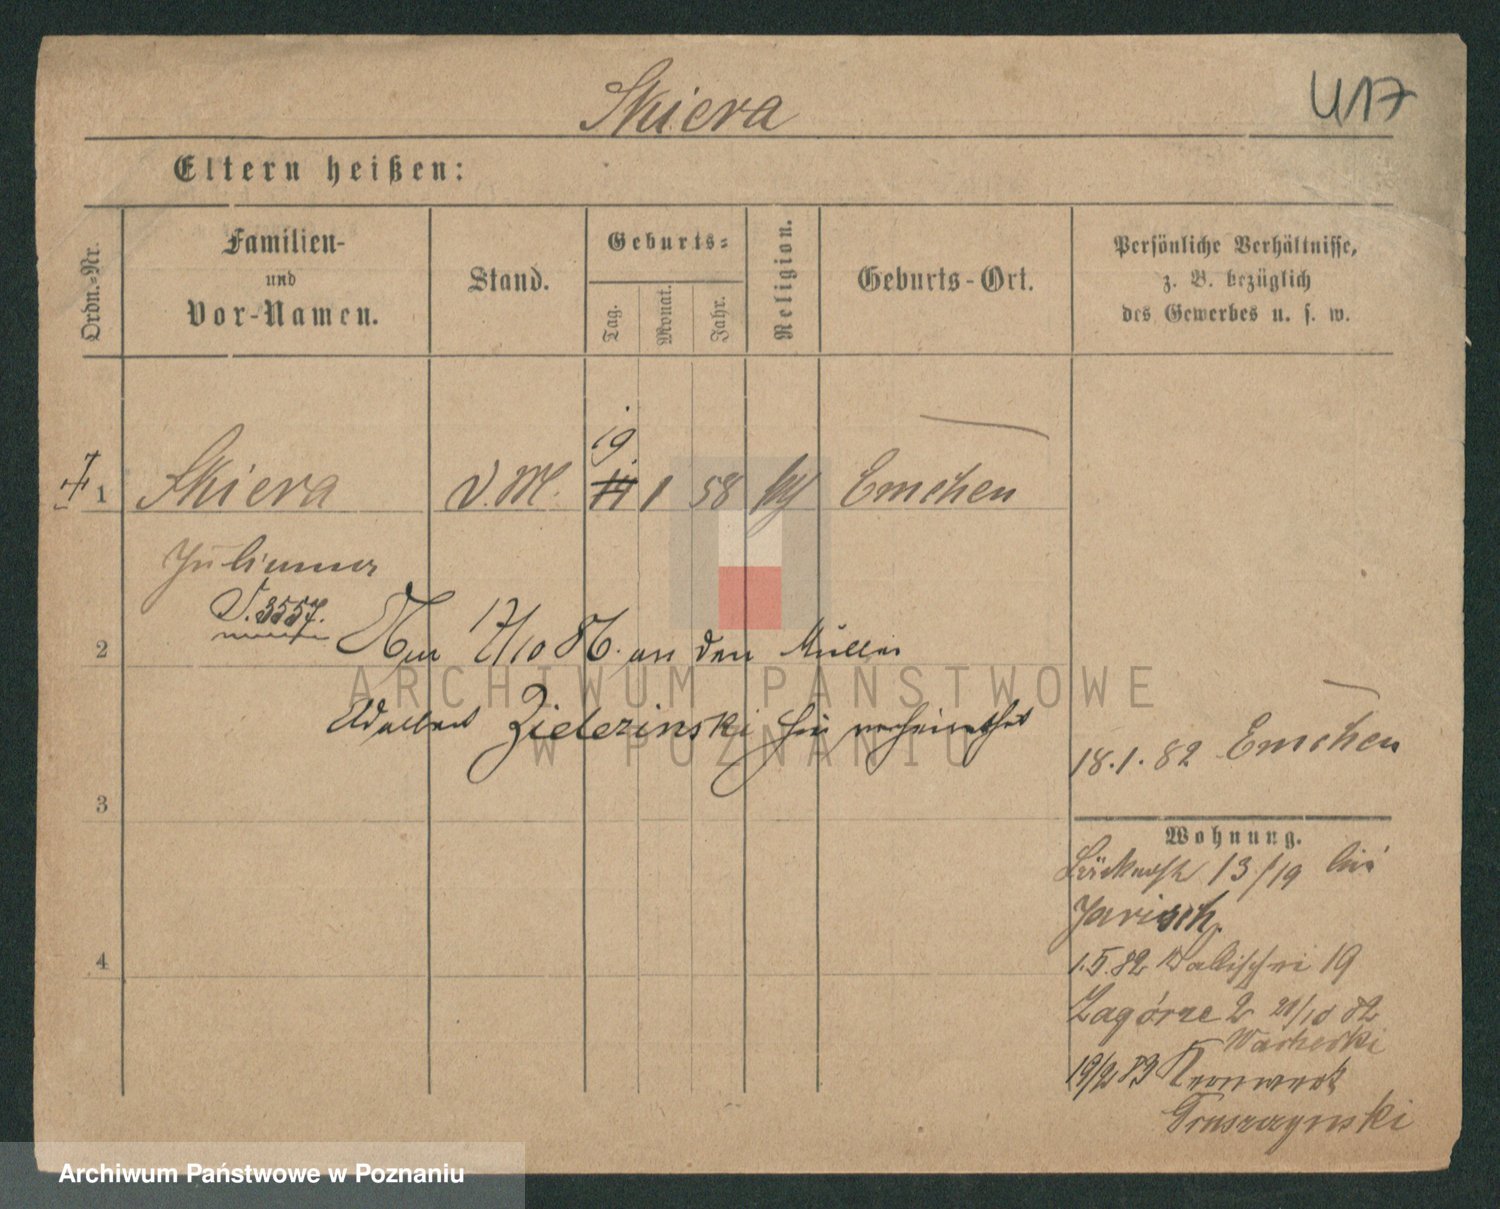 Skiera
U17
Eltern heißen:
Ordn.-Nr.
Familien-
und
Vor-Namen.
Stand.
Geburts-
Tag.
Monat.
Jahr.
Religion.
Geburts-Ort.
Persönliche Verhältnisse,
z. B. bezüglich
des Gewerbes u. s. w.
19.
1 Skiera D.M. 14 1 58 Emchen
Julianna
S. 3557.
2 17/10 86. an den Müller
Adalbert Zielezinski hier verheirathet
3
4
18.1.82 Emchen
Wohnung.
13/19 bei
Jarisch.
1.5.82 Wallischei 19
Zagórze 2 21/10 82
19/2 83 Kernwerk
Gruszczynski
ARCHIWUM PAŃSTWOWE
W POZNANIU
Archiwum Państwowe w Poznaniu